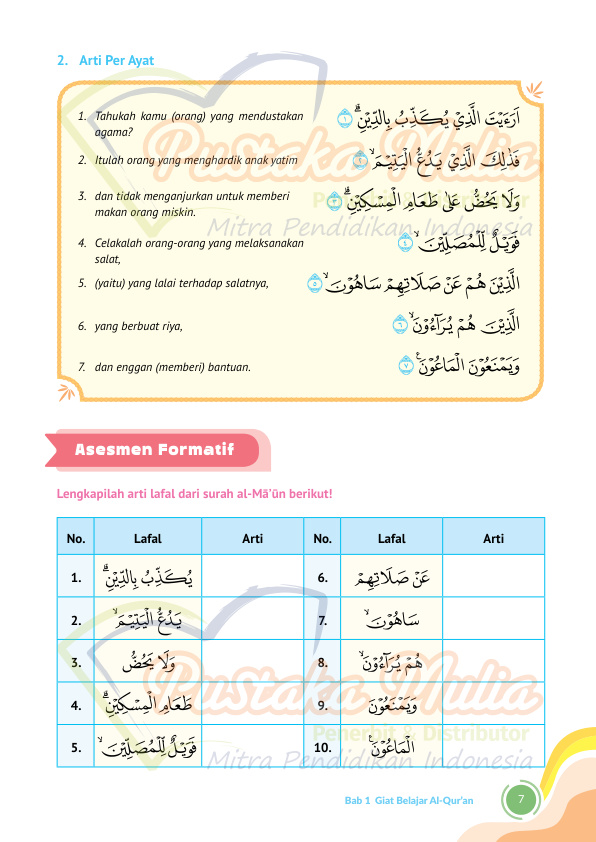 2. Arti Per Ayat
1. Tahukah kamu (orang) yang mendustakan
agama?
اَرَءَيْتَ الَّذِيْ يُكَذِّبُ بِالدِّيْنِۗ ١
2. Itulah orang yang menghardik anak yatim
فَذٰلِكَ الَّذِيْ يَدُعُّ الْيَتِيْمَۙ ٢
3. dan tidak menganjurkan untuk memberi
makan orang miskin.
وَلَا يَحُضُّ عَلٰى طَعَامِ الْمِسْكِيْنِۗ ٣
4. Celakalah orang-orang yang melaksanakan
salat,
فَوَيْلٌ لِّلْمُصَلِّيْنَۙ ٤
5. (yaitu) yang lalai terhadap salatnya,
الَّذِيْنَ هُمْ عَنْ صَلَاتِهِمْ سَاهُوْنَۙ ٥
6. yang berbuat riya,
الَّذِيْنَ هُمْ يُرَاۤءُوْنَۙ ٦
7. dan enggan (memberi) bantuan.
وَيَمْنَعُوْنَ الْمَاعُوْنَࣖ ٧
Asesmen Formatif
Lengkapilah arti lafal dari surah al-Mā'ūn berikut!
No. Lafal Arti No. Lafal Arti
1. يُكَذِّبُ بِالدِّيْنِۗ 6. عَنْ صَلَاتِهِمْ
2. يَدُعُّ الْيَتِيْمَۙ 7. سَاهُوْنَۙ
3. وَلَا يَحُضُّ 8. هُمْ يُرَاۤءُوْنَۙ
4. طَعَامِ الْمِسْكِيْنِۗ 9. وَيَمْنَعُوْنَ
5. فَوَيْلٌ لِّلْمُصَلِّيْنَۙ 10. الْمَاعُوْنَࣖ
Pustaka Mulia
Penerbit & Distributor
Mitra Pendidikan Indonesia
Pustaka Mulia
Penerbit & Distributor
Mitra Pendidikan Indonesia
Bab 1 Giat Belajar Al-Qur'an 7